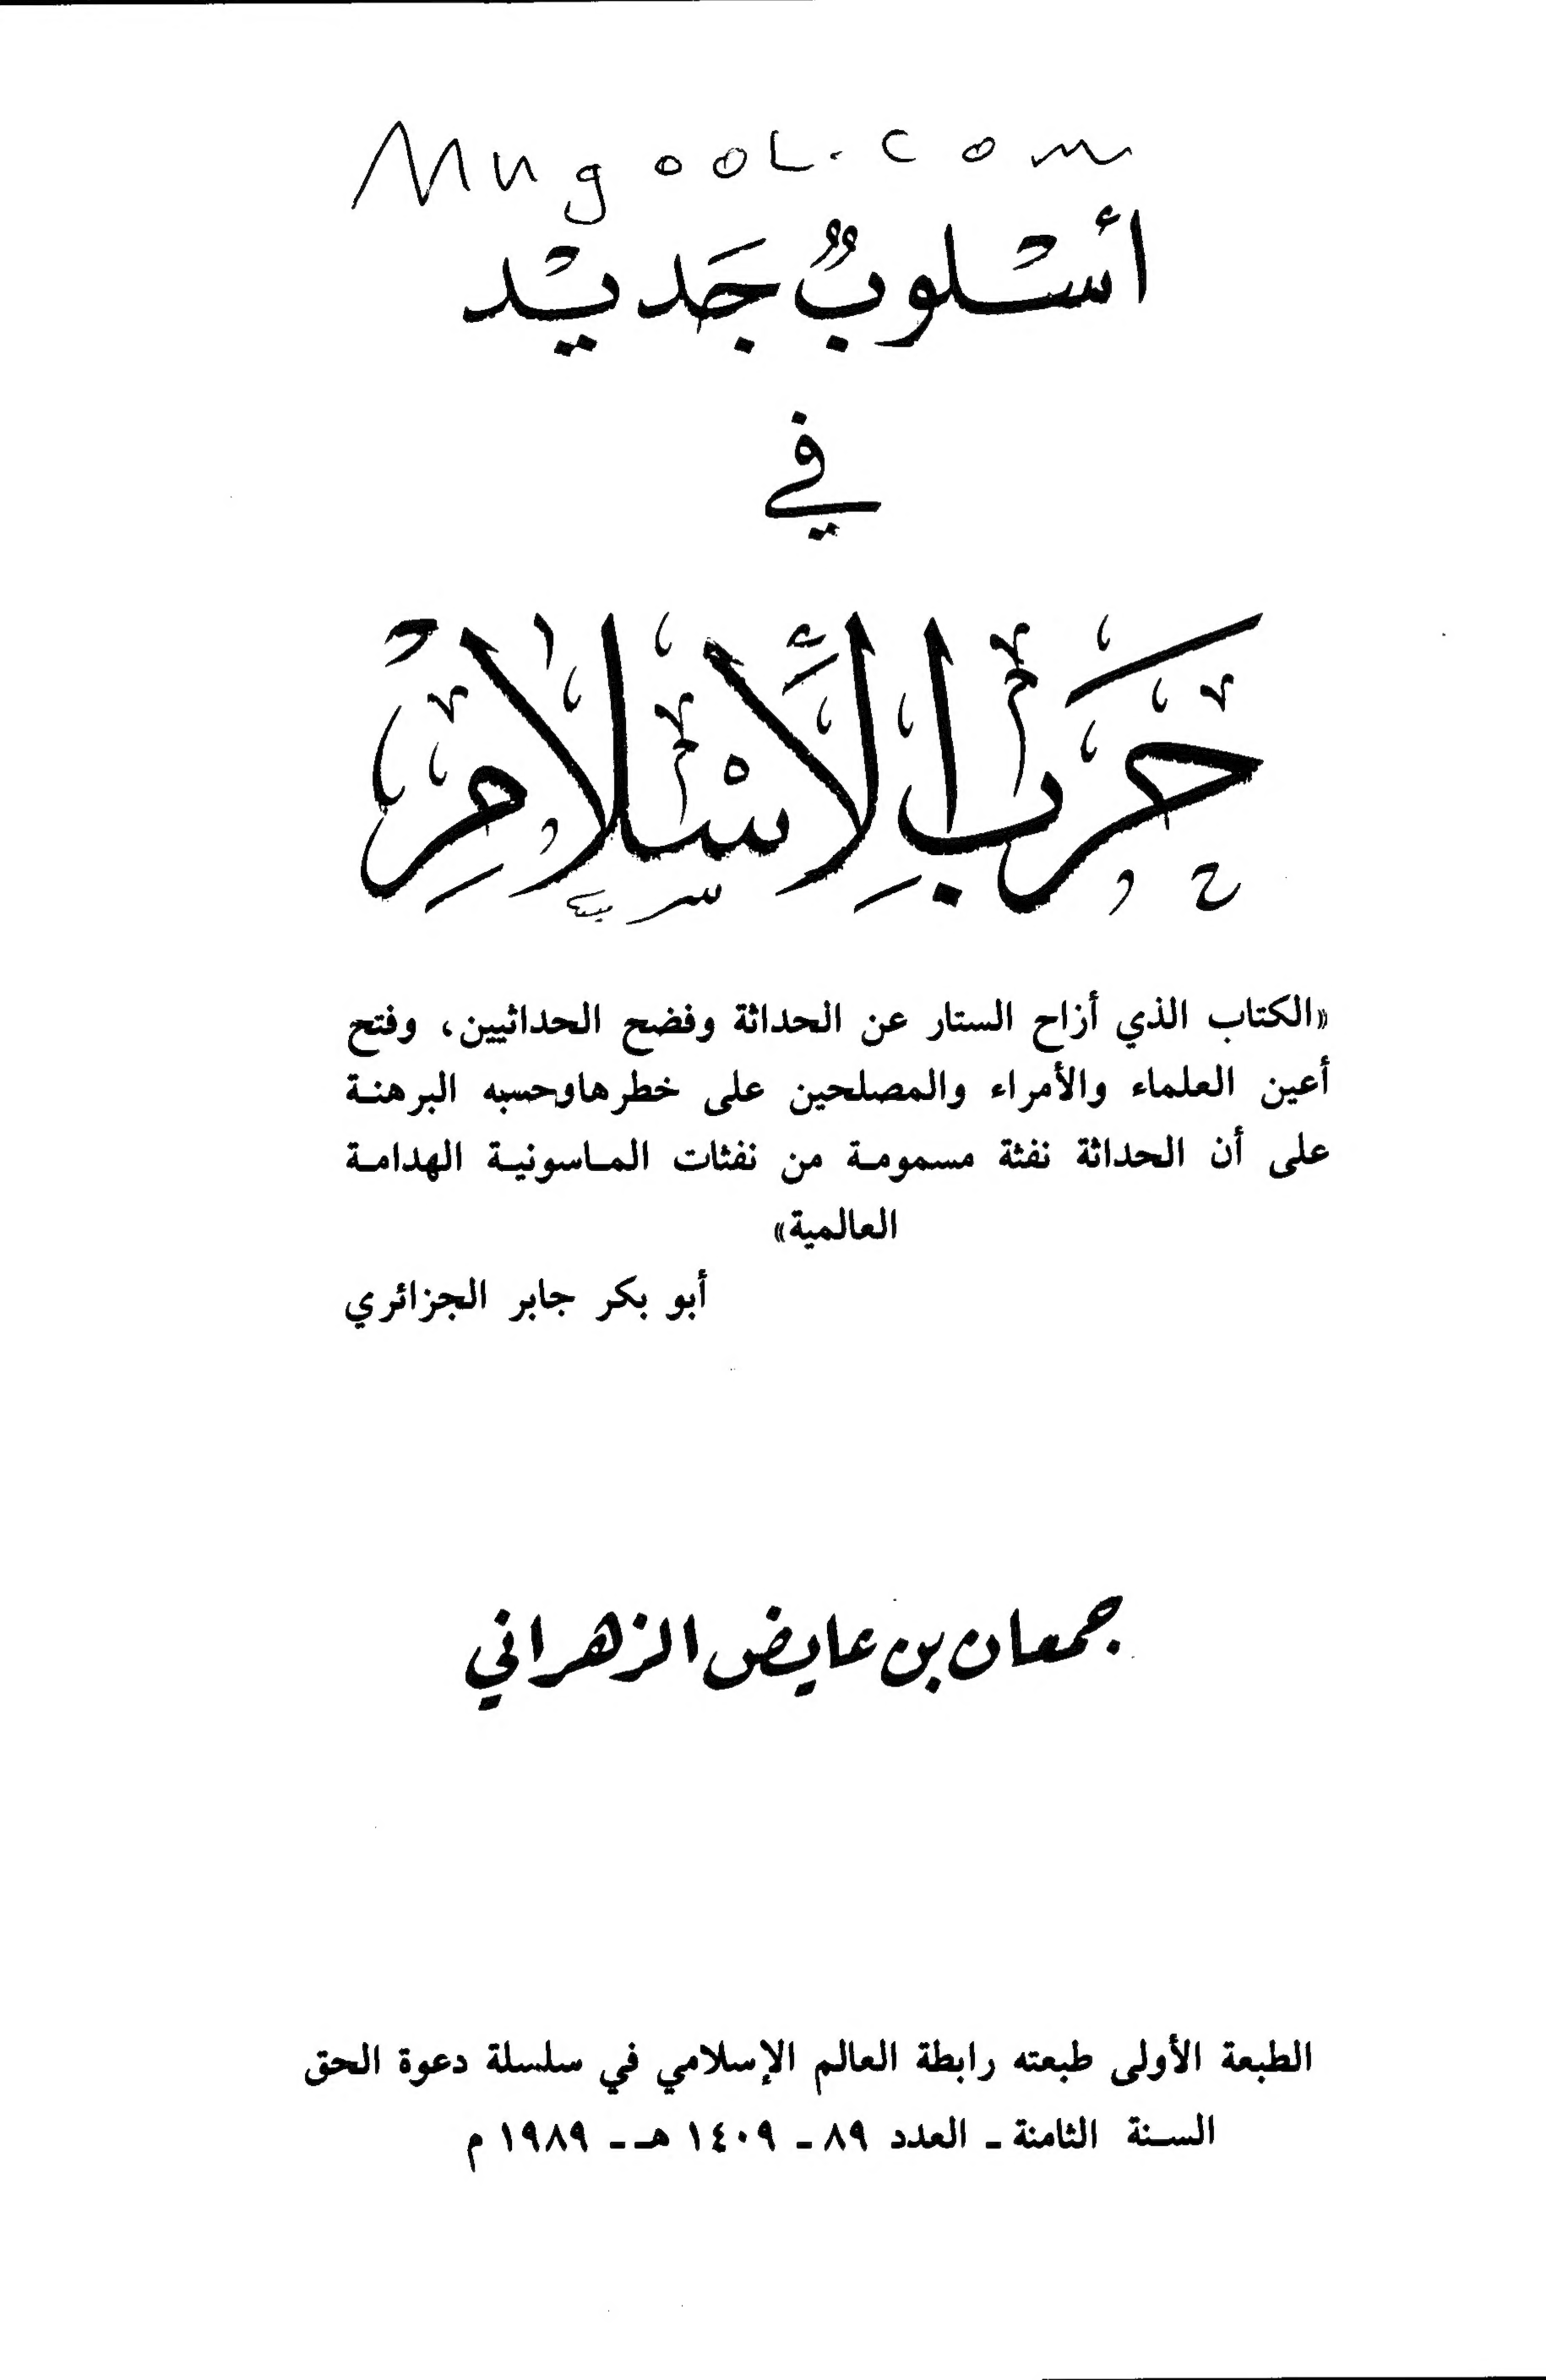 Mugool.com
أسلوبٌ جَديد
في
حَرب الإسْلامِ
«الكتاب الذي أزاح الستار عن الحداثة وفضح الحداثيين، وفتح
أعين العلماء والأمراء والمصلحين على خطرها وحسبه البرهنة
على أن الحداثة نفثة مسمومة من نفثات الماسونية الهدامة
العالمية»
أبو بكر جابر الجزائري
جمعان بن عايض الزهراني
الطبعة الأولى طبعته رابطة العالم الإسلامي في سلسلة دعوة الحق
السنة الثامنة ـ العدد ٨٩ ـ ١٤٠٩ هـ ـ ١٩٨٩ م